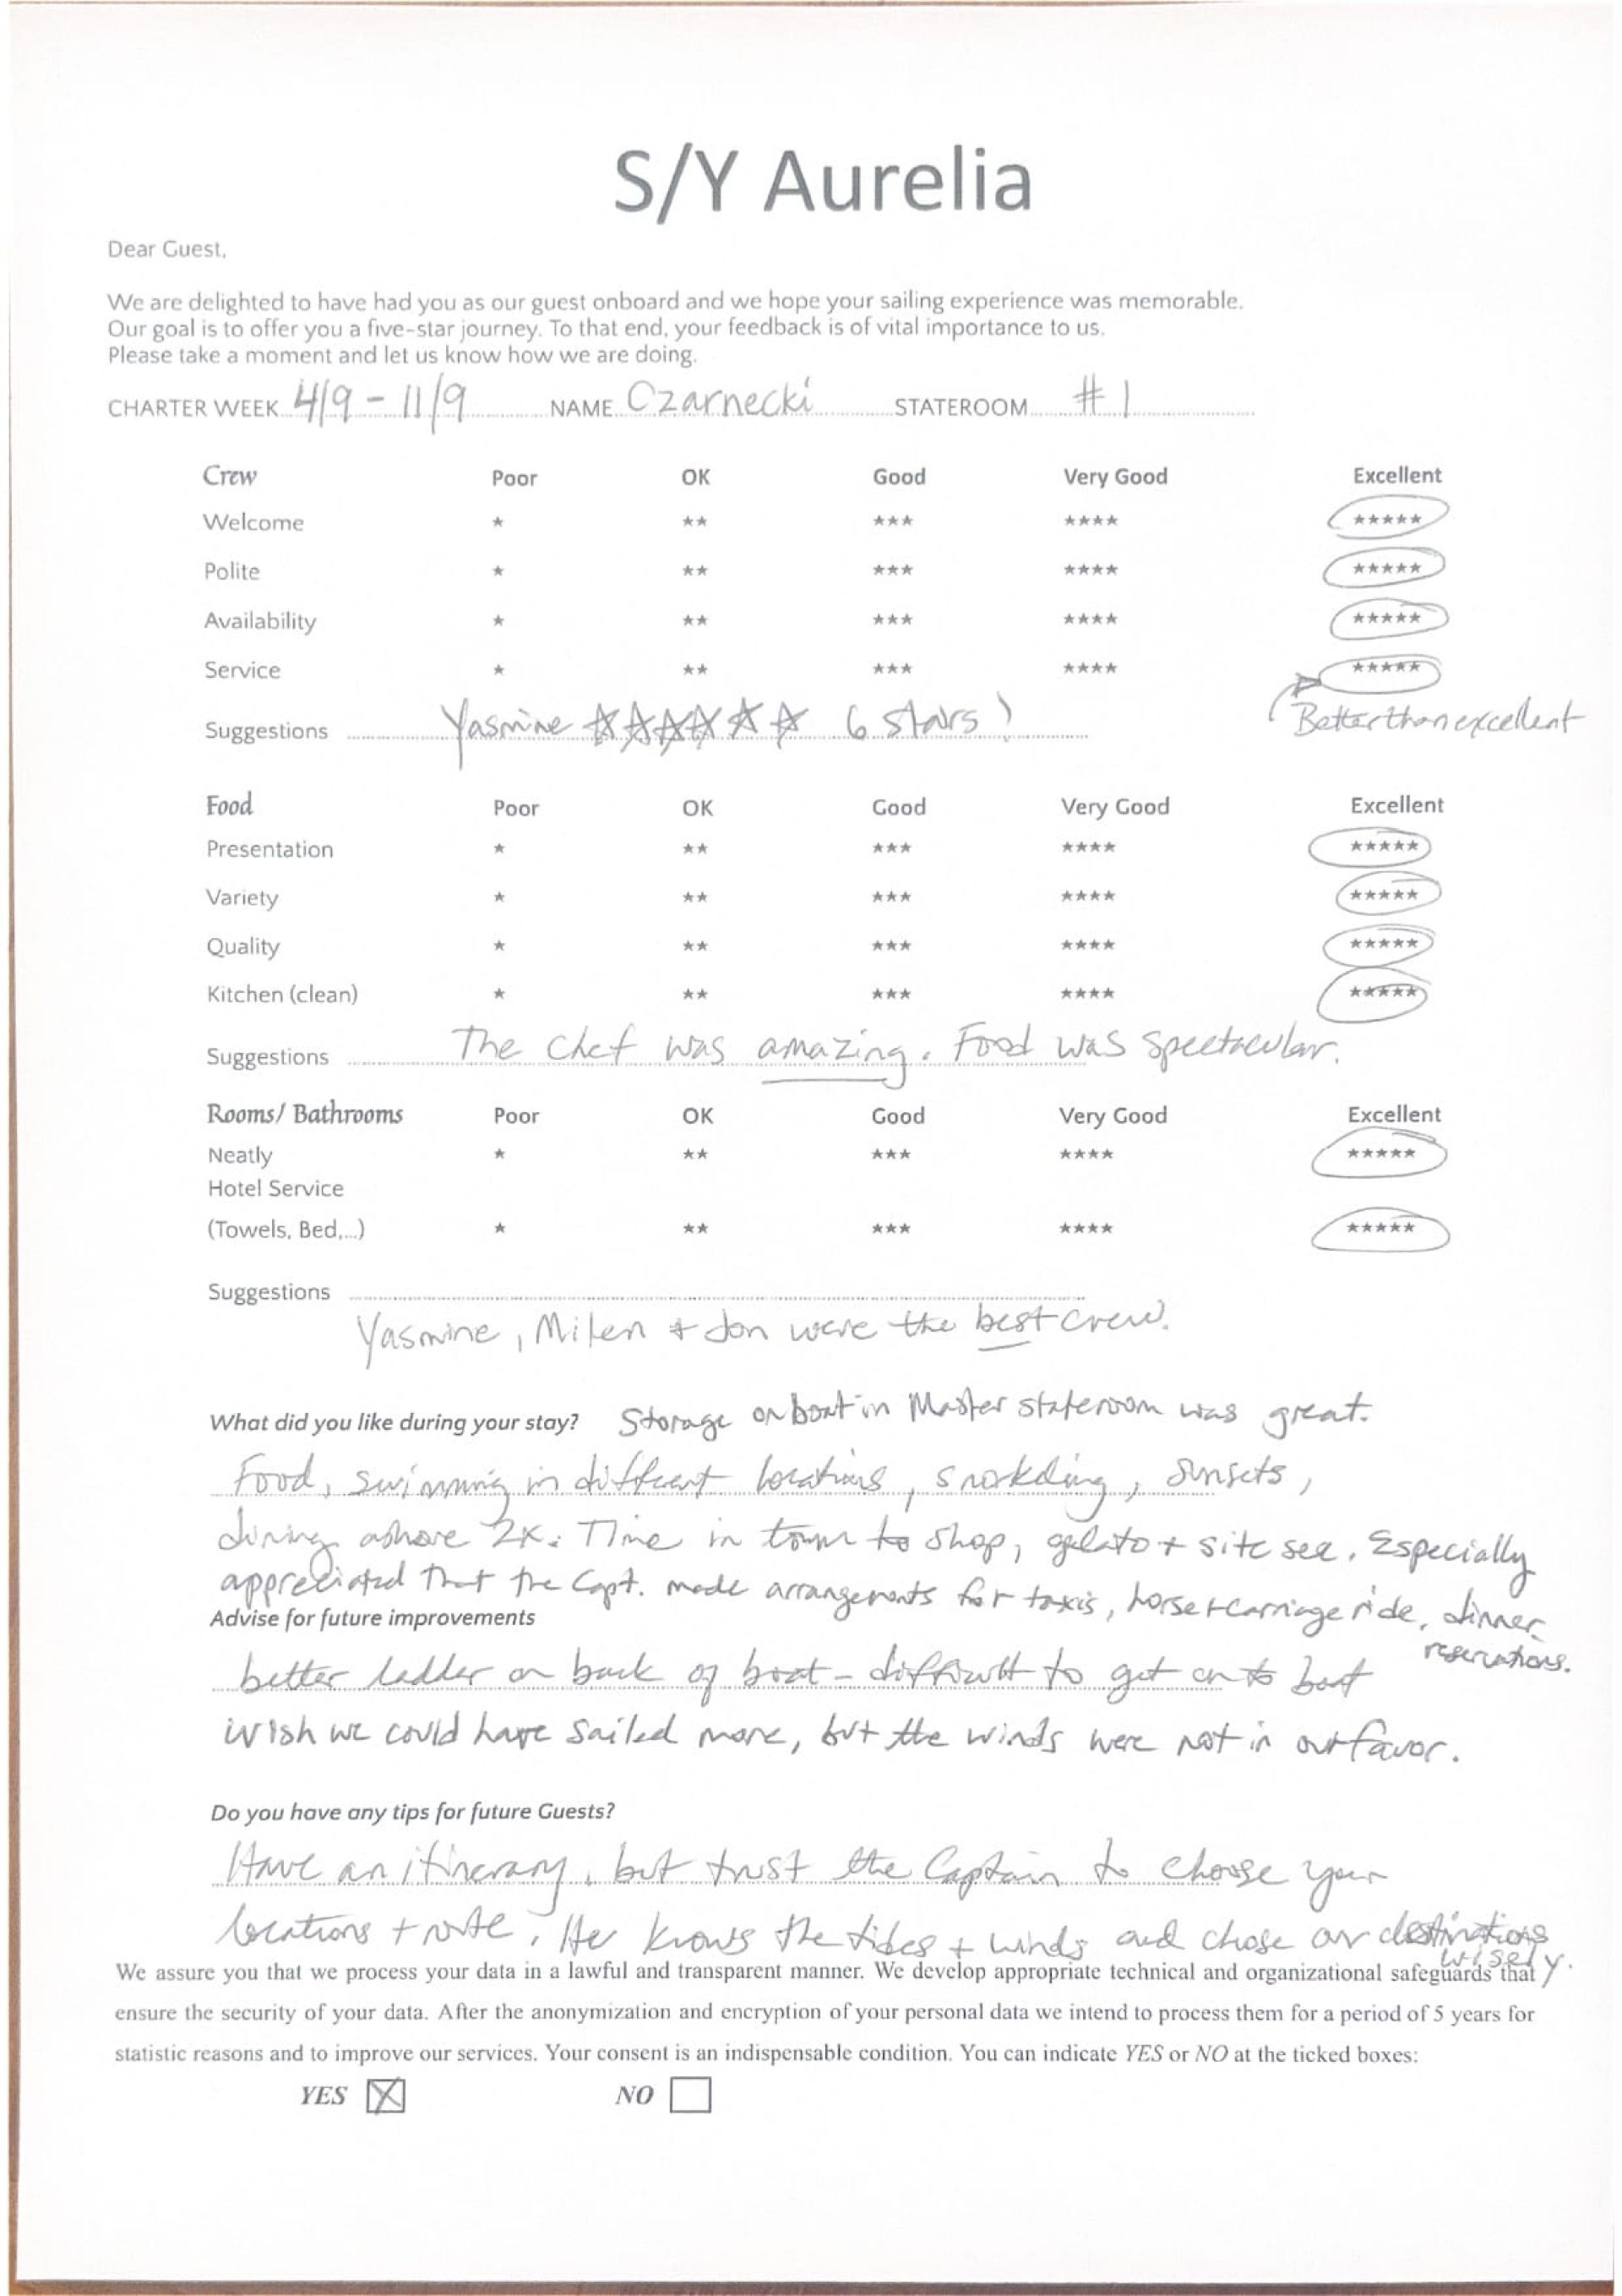 S/Y Aurelia
Dear Guest,
We are delighted to have had you as our guest onboard and we hope your sailing experience was memorable.
Our goal is to offer you a five-star journey. To that end, your feedback is of vital importance to us.
Please take a moment and let us know how we are doing.
CHARTER WEEK 4/9 - 11/9 NAME Czarnecki STATEROOM #1
Crew Poor OK Good Very Good Excellent
Welcome ★ ★★ ★★★ ★★★★ ★★★★★
Polite ★ ★★ ★★★ ★★★★ ★★★★★
Availability ★ ★★ ★★★ ★★★★ ★★★★★
Service ★ ★★ ★★★ ★★★★ ★★★★★
Suggestions Yasmine ☆☆☆☆☆☆ 6 stars! Better than excellent
Food Poor OK Good Very Good Excellent
Presentation ★ ★★ ★★★ ★★★★ ★★★★★
Variety ★ ★★ ★★★ ★★★★ ★★★★★
Quality ★ ★★ ★★★ ★★★★ ★★★★★
Kitchen (clean) ★ ★★ ★★★ ★★★★ ★★★★★
Suggestions The chef was amazing. Food was spectacular.
Rooms/ Bathrooms Poor OK Good Very Good Excellent
Neatly ★ ★★ ★★★ ★★★★ ★★★★★
Hotel Service
(Towels, Bed,...) ★ ★★ ★★★ ★★★★ ★★★★★
Suggestions
Yasmine, Milen + Jon were the best crew.
What did you like during your stay? Storage on boat in Master stateroom was great.
Food, swimming in different locations, snorkeling, sunsets,
dining ashore 2x. Time in town to shop, gelato + site see. Especially
appreciated that the Capt. made arrangements for taxis, horse + carriage ride, dinner
reservations.
Advise for future improvements
better ladder on back of boat - difficult to get on to boat
wish we could have sailed more, but the winds were not in our favor.
Do you have any tips for future Guests?
Have an itinerary, but trust the Captain to choose your
locations + route. He knows the tides + winds and chose our destinations
wisely.
We assure you that we process your data in a lawful and transparent manner. We develop appropriate technical and organizational safeguards that
ensure the security of your data. After the anonymization and encryption of your personal data we intend to process them for a period of 5 years for
statistic reasons and to improve our services. Your consent is an indispensable condition. You can indicate YES or NO at the ticked boxes:
YES ☒ NO ☐